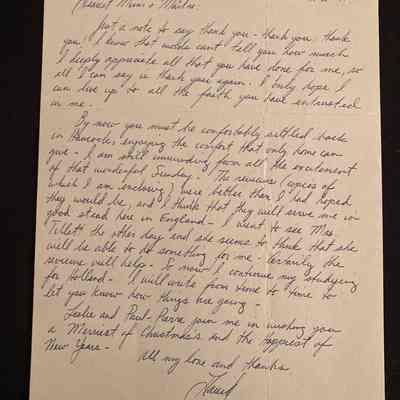 Dearest Mimi + Maitre:
Just a note to say thank you - thank you, thank
you. I know that words can't tell you how much
I deeply appreciate all that you have done for me, so
all I can say is thank you again. I only hope I
can live up to all the faith you have entrusted
in me.
By now you must be comfortably settled back
in Hancock enjoying the comfort that only home can
give - I am still unwinding from all the excitement
of that wonderful Sunday. The reviews (copies of
which I am enclosing) were better than I had hoped
they would be, and I think that they will serve me in
good stead here in England - I went to see Mrs.
Tillett the other day and she seems to think that she
will be able to do something for me - Certainly the
reviews will help - So now I continue my studying
for Holland - I will write from time to time to
let you know how things are going -
Leslie and Paul-Pierre join me in wishing you
a Merriest of Christmas's and the Happiest of
New Years -
All my love and thanks
David